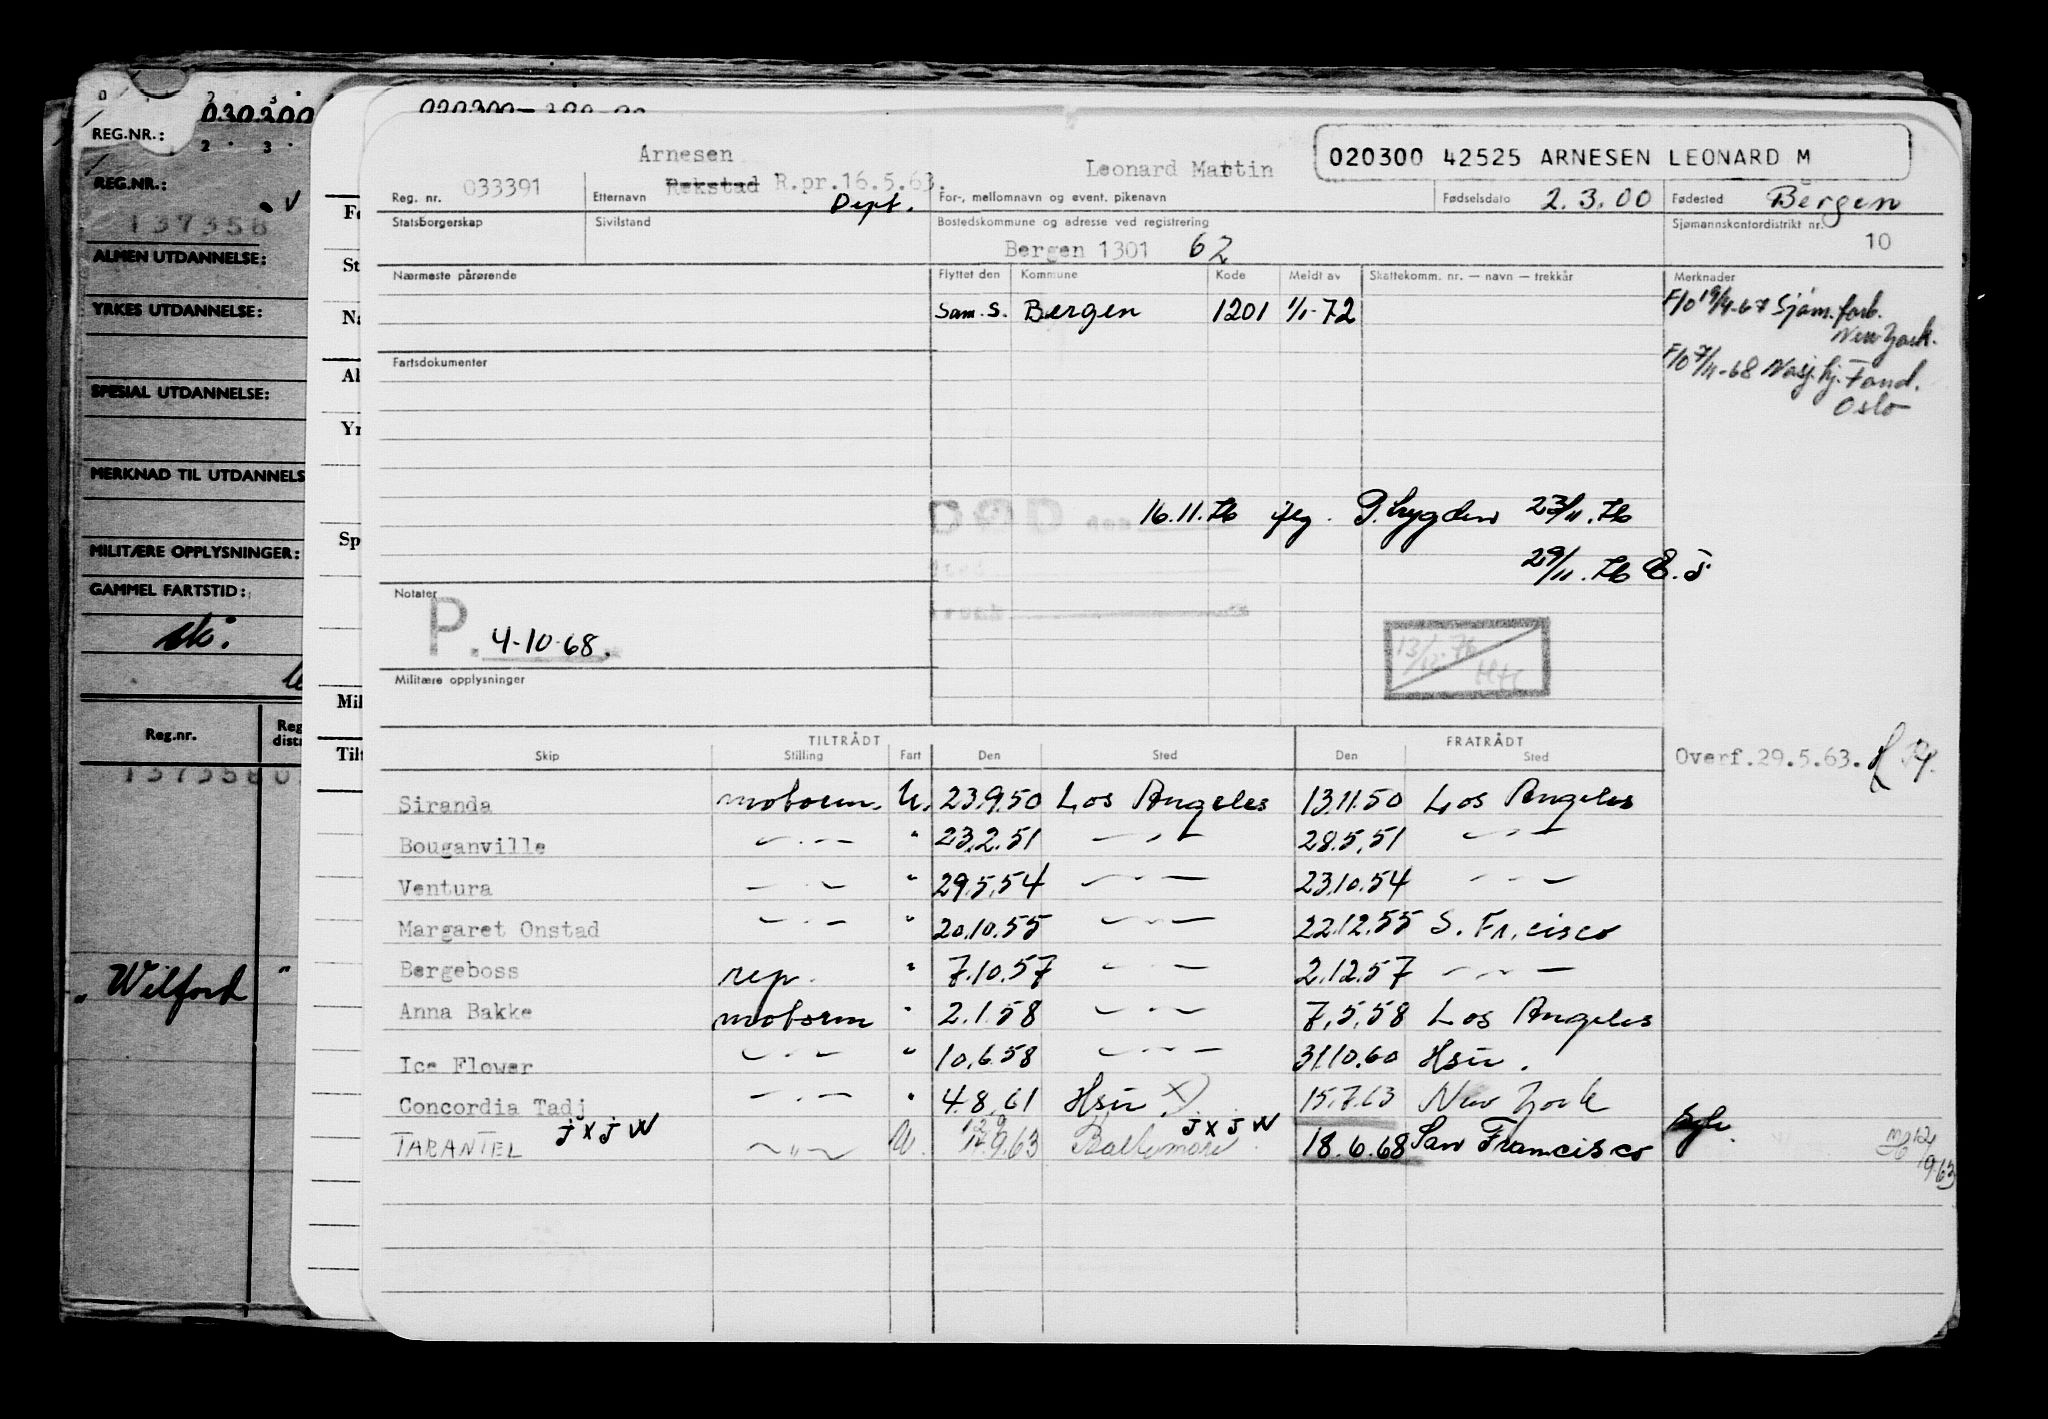 030300
REG.NR.:
REG.NR.:
137358
ALMEN UTDANNELSE:
YRKES UTDANNELSE:
SPESIAL UTDANNELSE:
MERKNAD TIL UTDANNELS
MILITÆRE OPPLYSNINGER:
GAMMEL FARTSTID:
Reg.nr. Reg distr
137358
"Wilford"
St
Na
Al
Yr
Sp
Mil
Tilt
Arnesen Leonard Martin 020300 42525 ARNESEN LEONARD M
Reg. nr. 033391 Etternavn Rekstad R.pr.16.5.63. Dept. For-, mellomnavn og event. pikenavn Fødselsdato 2.3.00 Fødested Bergen
Statsborgerskap Sivilstand Bostedskommune og adresse ved registrering Sjømannskontordistrikt nr.
Bergen 1301 62 10
Nærmeste pårørende Flyttet den Kommune Kode Meldt av Skattekomm. nr. — navn — trekkår Merknader
Sam. S. Bergen 1201 1/1-72 F/O 19/4-67 Sjøm.forb. New York.
Fartsdokumenter F/O 7/11-68 Nasj.hj. Fond. Oslo
16.11.76 23/11.76
29/11.76
Notater
P. 4-10-68.
13/12.76
Militære opplysninger
TILTRÅDT FRATRÅDT
Skip Stilling Fart Den Sted Den Sted Overf.29.5.63.
Siranda motorm. U. 23.9.50 Los Angeles 13.11.50 Los Angeles
Bouganville — " — " 23.2.51 — " — 28.5.51 — " —
Ventura — " — " 29.5.54 — " — 23.10.54 — " —
Margaret Onstad — " — " 20.10.55 — " — 22.12.55 S. Fr.cisco
Bergeboss rep. " 7.10.57 — " — 2.12.57 — " —
Anna Bakke motorm " 2.1.58 — " — 7.5.58 Los Angeles
Ice Flower — " — " 10.6.58 — " — 31.10.60 Hsü.
Concordia Tadj — " — " 4.8.61 Hsü. X) 15.7.63 New York
TARANTEL J X J W — " — U. 9.63 Baltimore J X J W 18.6.68 San Francisco